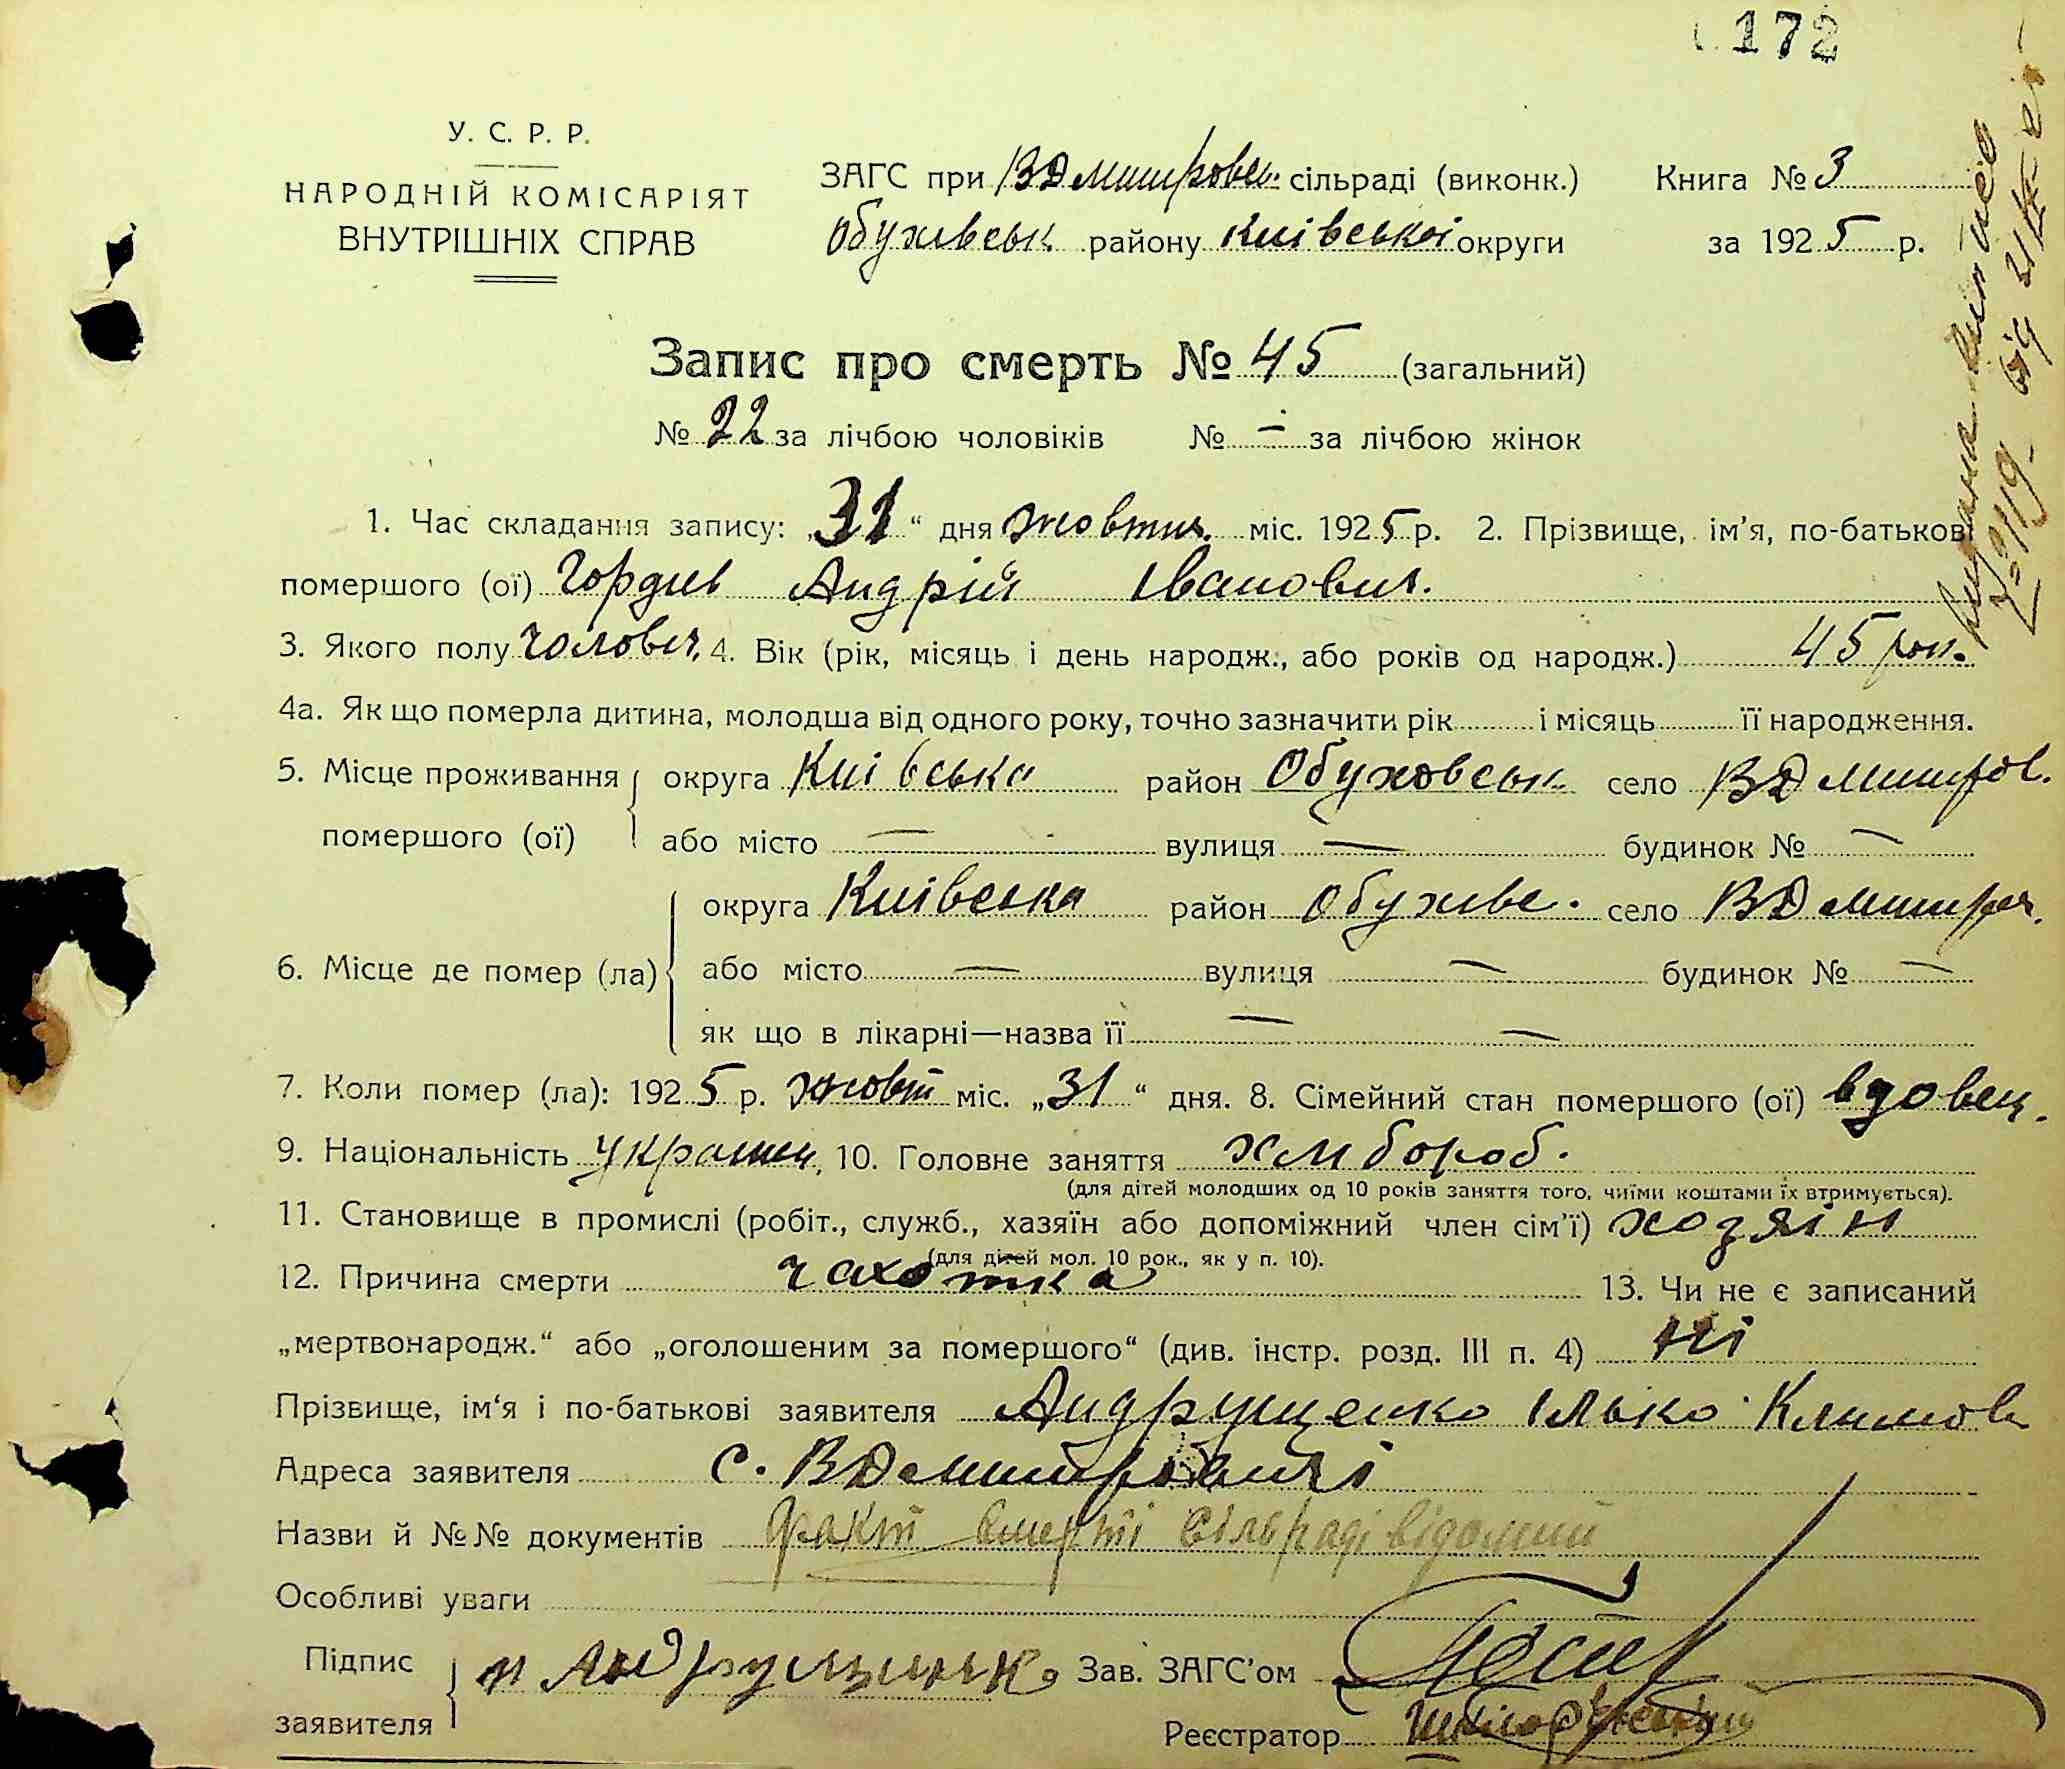 172
У. С. Р. Р.
НАРОДНІЙ КОМІСАРІЯТ
ВНУТРІШНІХ СПРАВ
ЗАГС при ВДмитров. сільраді (виконк.)
Обухівськ району Київської округи
Книга № 3
за 1925 р.
Запис про смерть № 45 (загальний)
№ 22 за лічбою чоловіків № — за лічбою жінок
1. Час складання запису: „31“ дня жовтня міс. 1925 р. 2. Прізвище, ім’я, по-батькові
помершого (ої) Гордієв Андрій Іванович.
3. Якого полу чолович. 4. Вік (рік, місяць і день народж., або років од народж.) 45 рок.
4а. Як що померла дитина, молодша від одного року, точно зазначити рік і місяць її народження.
5. Місце проживання помершого (ої) округа Київська район Обуховськ село ВДмитров.
або місто — вулиця — будинок № —
6. Місце де помер (ла) округа Київська район Обухівс. село ВДмитров.
або місто — вулиця — будинок № —
як що в лікарні—назва її — —
7. Коли помер (ла): 1925 р. жовт міс. „31“ дня. 8. Сімейний стан помершого (ої) вдовец.
9. Національність українец. 10. Головне заняття хлібороб.
(для дітей молодших од 10 років заняття того, чиїми коштами їх втримується).
11. Становище в промислі (робіт., служб., хазяїн або допоміжний член сім’ї) хозяїн
(для дітей мол. 10 рок., як у п. 10).
12. Причина смерти чахотка 13. Чи не є записаний
„мертвонародж.“ або „оголошеним за помершого“ (див. інстр. розд. III п. 4) ні
Прізвище, ім‘я і по-батькові заявителя Андрущенко Ілько Климов
Адреса заявителя с. ВДмитровичі
Назви й №№ документів Факт смерті сільраді відомий
Особливі уваги
Підпис заявителя Андрущенко Зав. ЗАГС’ом
Реєстратор